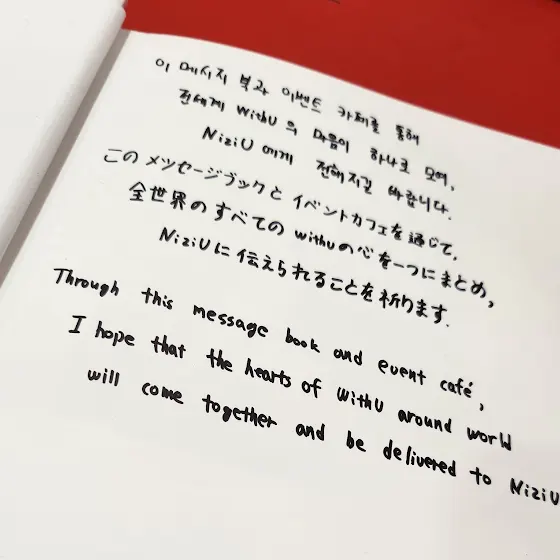 이 메시지 북과 이벤트 카페를 통해
전세계 WithU의 마음이 하나로 모여,
NiziU에게 전해지길 바랍니다.
このメッセージブックと イベントカフェを通じて,
全世界のすべての withuの心を一つにまとめ,
NiziUに伝えられることを祈ります.
Through this message book and event café,
I hope that the hearts of WithU around world
will come together and be delivered to NiziU